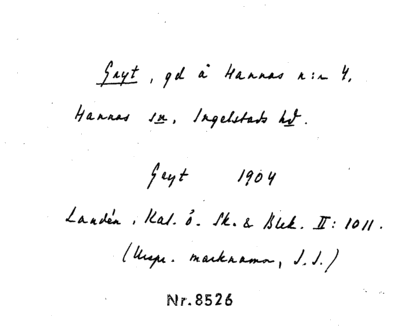 Gryt, gd å Hannas n:r 4,
Hannas sn, Ingelstads hd.
Gryt 1904
Landén, Kal. ö. Sk. & Blek. II: 1011.
(Urspr. marknamn, J.S.)
Nr. 8526